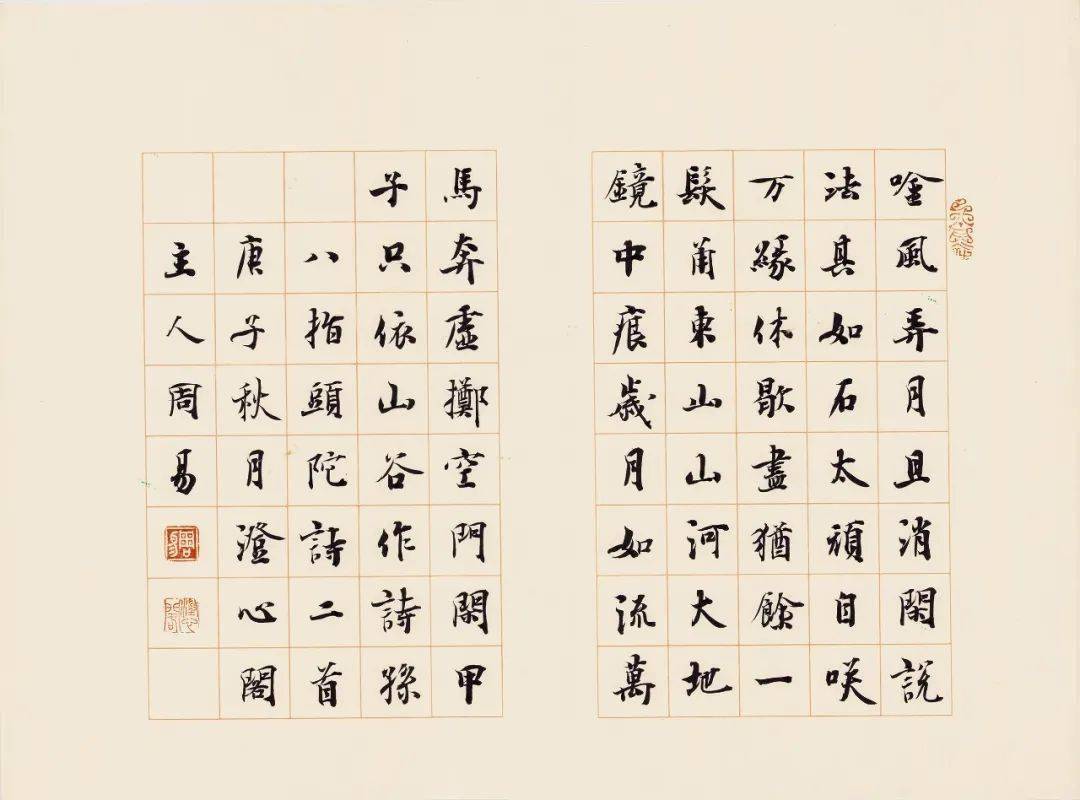 唫風弄月且消閑說
法真如石太頑自咲
万緣休歇盡猶餘一
髮甬東山山河大地
鏡中痕歲月如流萬
馬奔虛擲空門閑甲
子只依山谷作詩孫
八指頭陀詩二首
庚子秋月澄心閣
主人周易